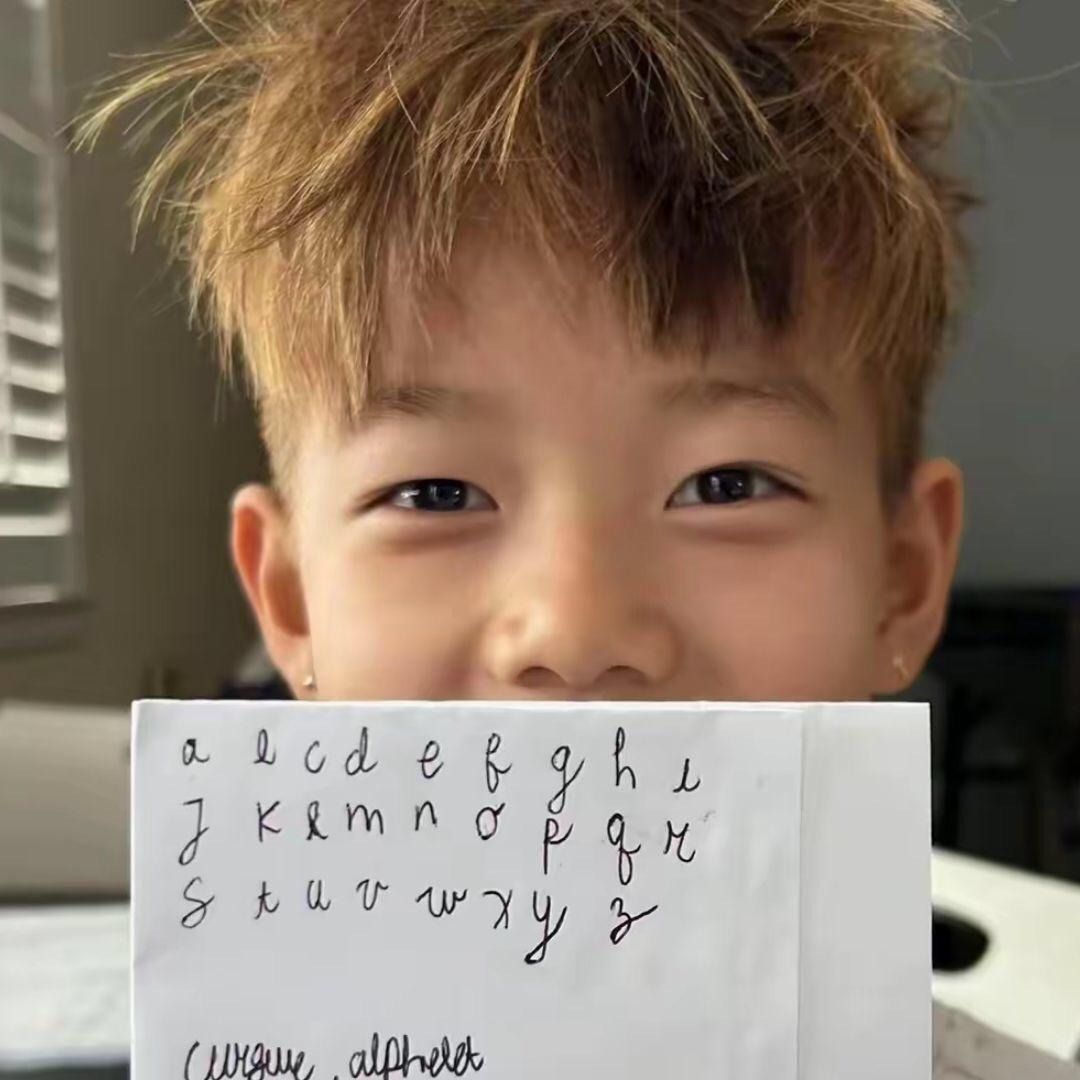 a b c d e f g h i
J K l m n o p q r
s t u v w x y z
cursive alphabet